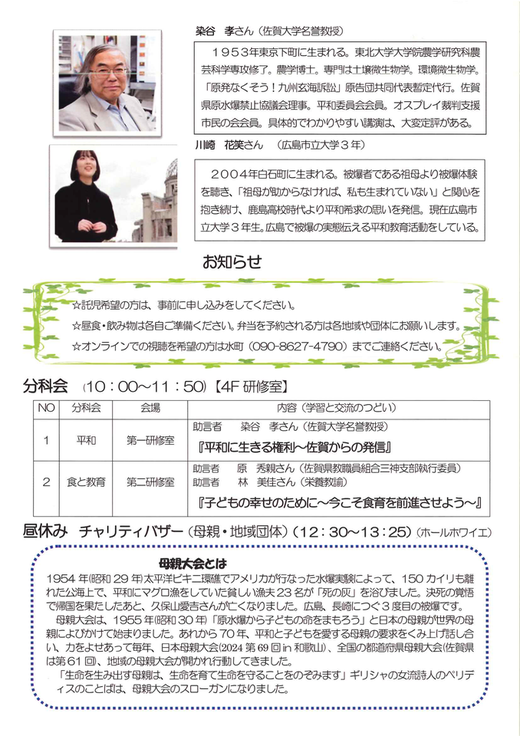 染谷　孝さん（佐賀大学名誉教授）
１９５３年東京下町に生まれる。東北大学大学院農学研究科農
芸科学専攻修了。農学博士。専門は土壌微生物学。環境微生物学。
「原発なくそう！九州玄海訴訟」原告団共同代表暫定代行。佐賀
県原水爆禁止協議会理事。平和委員会会員。オスプレイ裁判支援
市民の会会員。具体的でわかりやすい講演は、大変定評がある。
川﨑　花笑さん　（広島市立大学３年）
２００４年白石町に生まれる。被爆者である祖母より被爆体験
を聴き、「祖母が助からなければ、私も生まれていない」と関心を
抱き続け、鹿島高校時代より平和希求の思いを発信。現在広島市
立大学３年生。広島で被爆の実態伝える平和教育活動をしている。
お知らせ
☆託児希望の方は、事前に申し込みをしてください。
☆昼食・飲み物は各自ご準備ください。弁当を予約される方は各地域や団体にお願いします。
☆オンラインでの視聴を希望の方は水町（090-8627-4790）までご連絡ください。
分科会　（１０：００～１１：５０）【４F 研修室】
NO　分科会　会場　内容（学習と交流のつどい）
1　平和　第一研修室　助言者　染谷　孝さん（佐賀大学名誉教授）
『平和に生きる権利～佐賀からの発信』
2　食と教育　第二研修室　助言者　原　秀親さん（佐賀県教職員組合三神支部執行委員）
助言者　林　美佳さん（栄養教諭）
『子どもの幸せのために～今こそ食育を前進させよう～』
昼休み　チャリティバザー（母親・地域団体）（１２：３０～１３：２５）（ホールホワイエ）
母親大会とは
1954 年（昭和 29 年）太平洋ビキニ環礁でアメリカが行なった水爆実験によって、150 カイリも離
れた公海上で、平和にマグロ漁をしていた貧しい漁夫 23 名が「死の灰」を浴びました。決死の覚悟
で帰国を果たしたあと、久保山愛吉さんが亡くなりました。広島、長崎につぐ 3 度目の被爆です。
母親大会は、1955 年（昭和 30 年）「原水爆から子どもの命をまもろう」と日本の母親が世界の母
親によびかけて始まりました。あれから 70 年、平和と子どもを愛する母親の要求をくみ上げ話し合
い、力をよせあって毎年、日本母親大会（2024 第 69 回 in 和歌山）、全国の都道府県母親大会（佐賀県
は第 61 回）、地域の母親大会が開かれ行動してきました。
「生命を生み出す母親は、生命を育て生命を守ることをのぞみます」ギリシャの女流詩人のペリデ
ィスのことばは、母親大会のスローガンになりました。